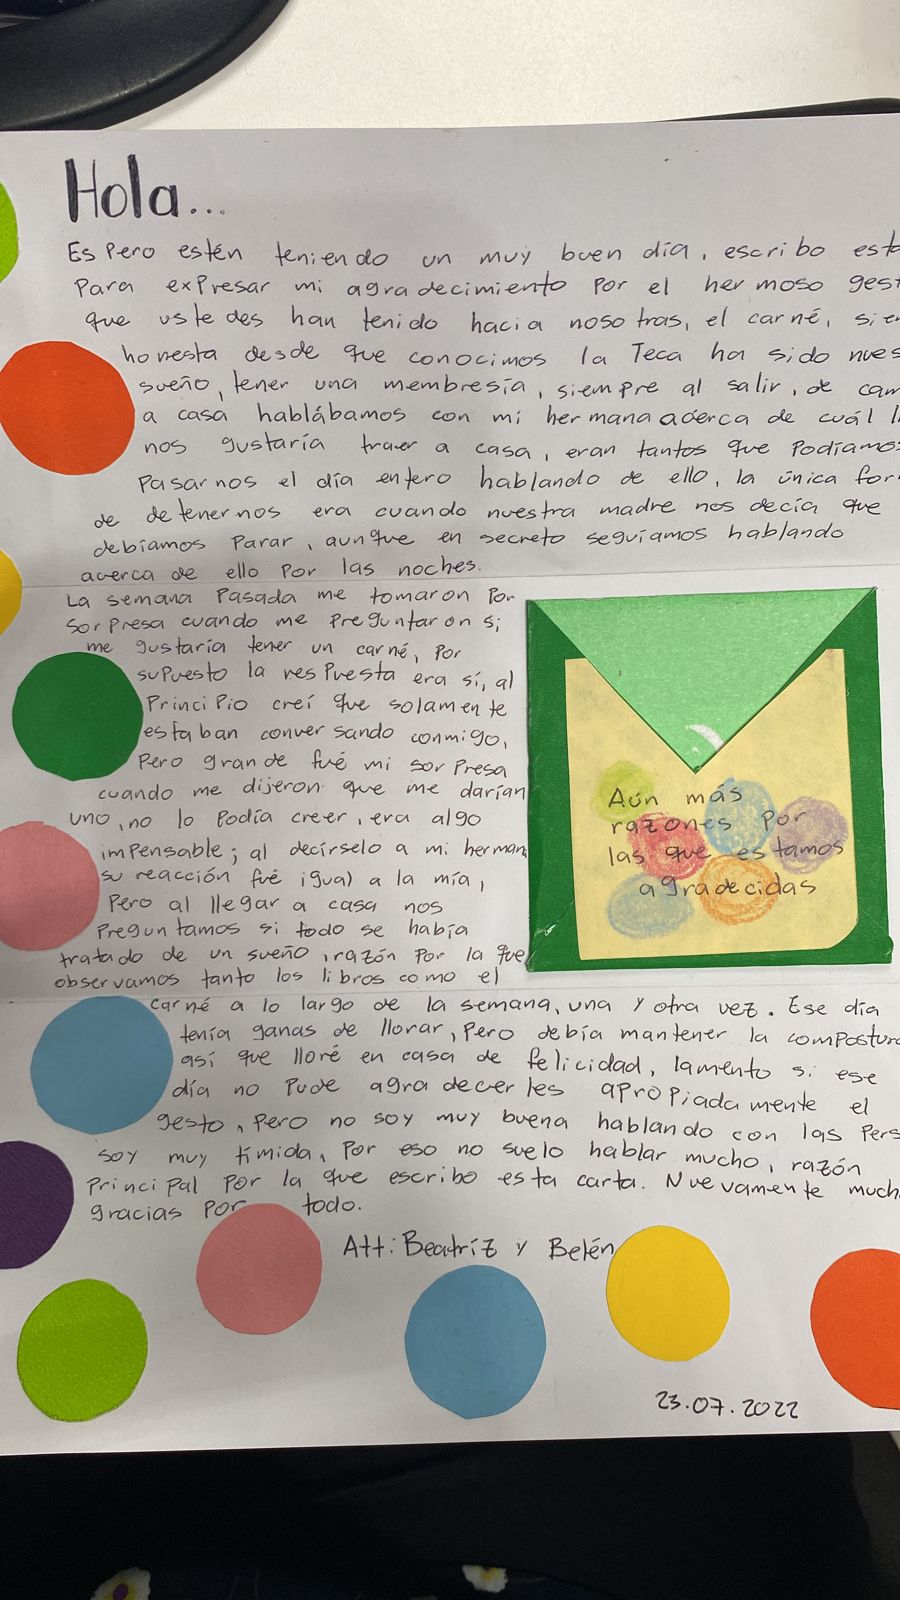 Hola...
Espero estén teniendo un muy buen día, escribo
para expresar mi agradecimiento por el hermoso
que ustedes han tenido hacia nosotras, el carné,
honesta desde que conocimos la Teca ha sido
sueño, tener una membresía, siempre al salir, de
a casa hablábamos con mi hermana acerca de cuál
nos gustaría traer a casa, eran tantos que Podíamos
Pasarnos el día entero hablando de ello, la única
de detenernos era cuando nuestra madre nos decía que
debíamos Parar, aunque en secreto seguíamos hablando
acerca de ello Por las noches.
La semana Pasada me tomaron Por
sorpresa cuando me Preguntaron si
me gustaría tener un carné, Por
supuesto la respuesta era sí, al
Principio creí que solamente
estaban conversando conmigo,
Pero grande fué mi sorpresa
cuando me dijeron que me darían
uno, no lo Podía creer, era algo
impensable; al decírselo a mi
su reacción fué igual a la mía,
Pero al llegar a casa nos
Preguntamos si todo se había
tratado de un sueño, razón Por la que
observamos tanto los libros como el
carné a lo largo de la semana, una y otra vez. Ese día
tenía ganas de llorar, Pero debía mantener la
así que lloré en casa de felicidad, lamento si ese
día no Pude agradecerles apropiadamente el
gesto, Pero no soy muy buena hablando con las
soy muy tímida, Por eso no suelo hablar mucho, razón
Principal Por la que escribo esta carta. Nuevamente
gracias Por todo.
Att: Beatríz y Belén
23.07.2022
Aún más
razones por
las que estamos
agradecidas